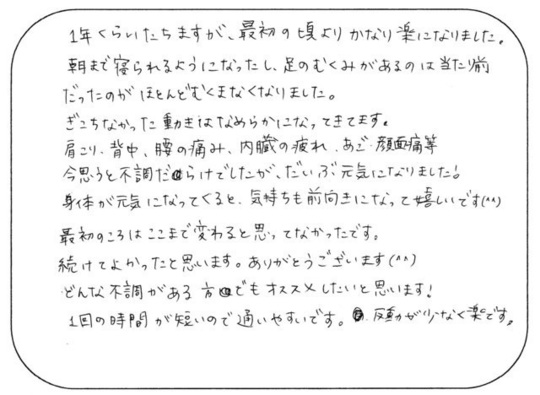 1年くらいたちますが、最初の頃よりかなり楽になりました。
朝まで寝られるようになったし、足のむくみがあるのは当たり前
だったのがほとんどむくまなくなりました。
ぎこちなかった動きはなめらかになってきてます。
肩こり、背中、腰の痛み、内臓の疲れ、あご・顔面痛等
今思うと不調だらけでしたが、だいぶ元気になりました!
身体が元気になってくると、気持ちも前向きになって嬉しいです(^^)
最初のころはここまで変わると思ってなかったです。
続けてよかったと思います。ありがとうございます(^^)
どんな不調がある方でもオススメしたいと思います!
1回の時間が短いので通いやすいです。反動が少なく楽です。